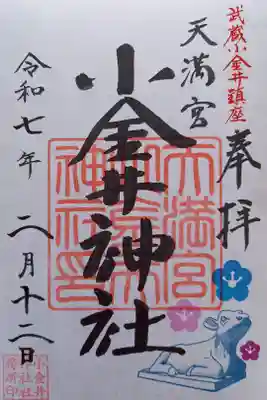 武蔵小金井鎮座
奉拝
天満宮
小金井神社
令和七年
二月十二日
天満宮
小金井
神社印
小金井
神社社
務所印